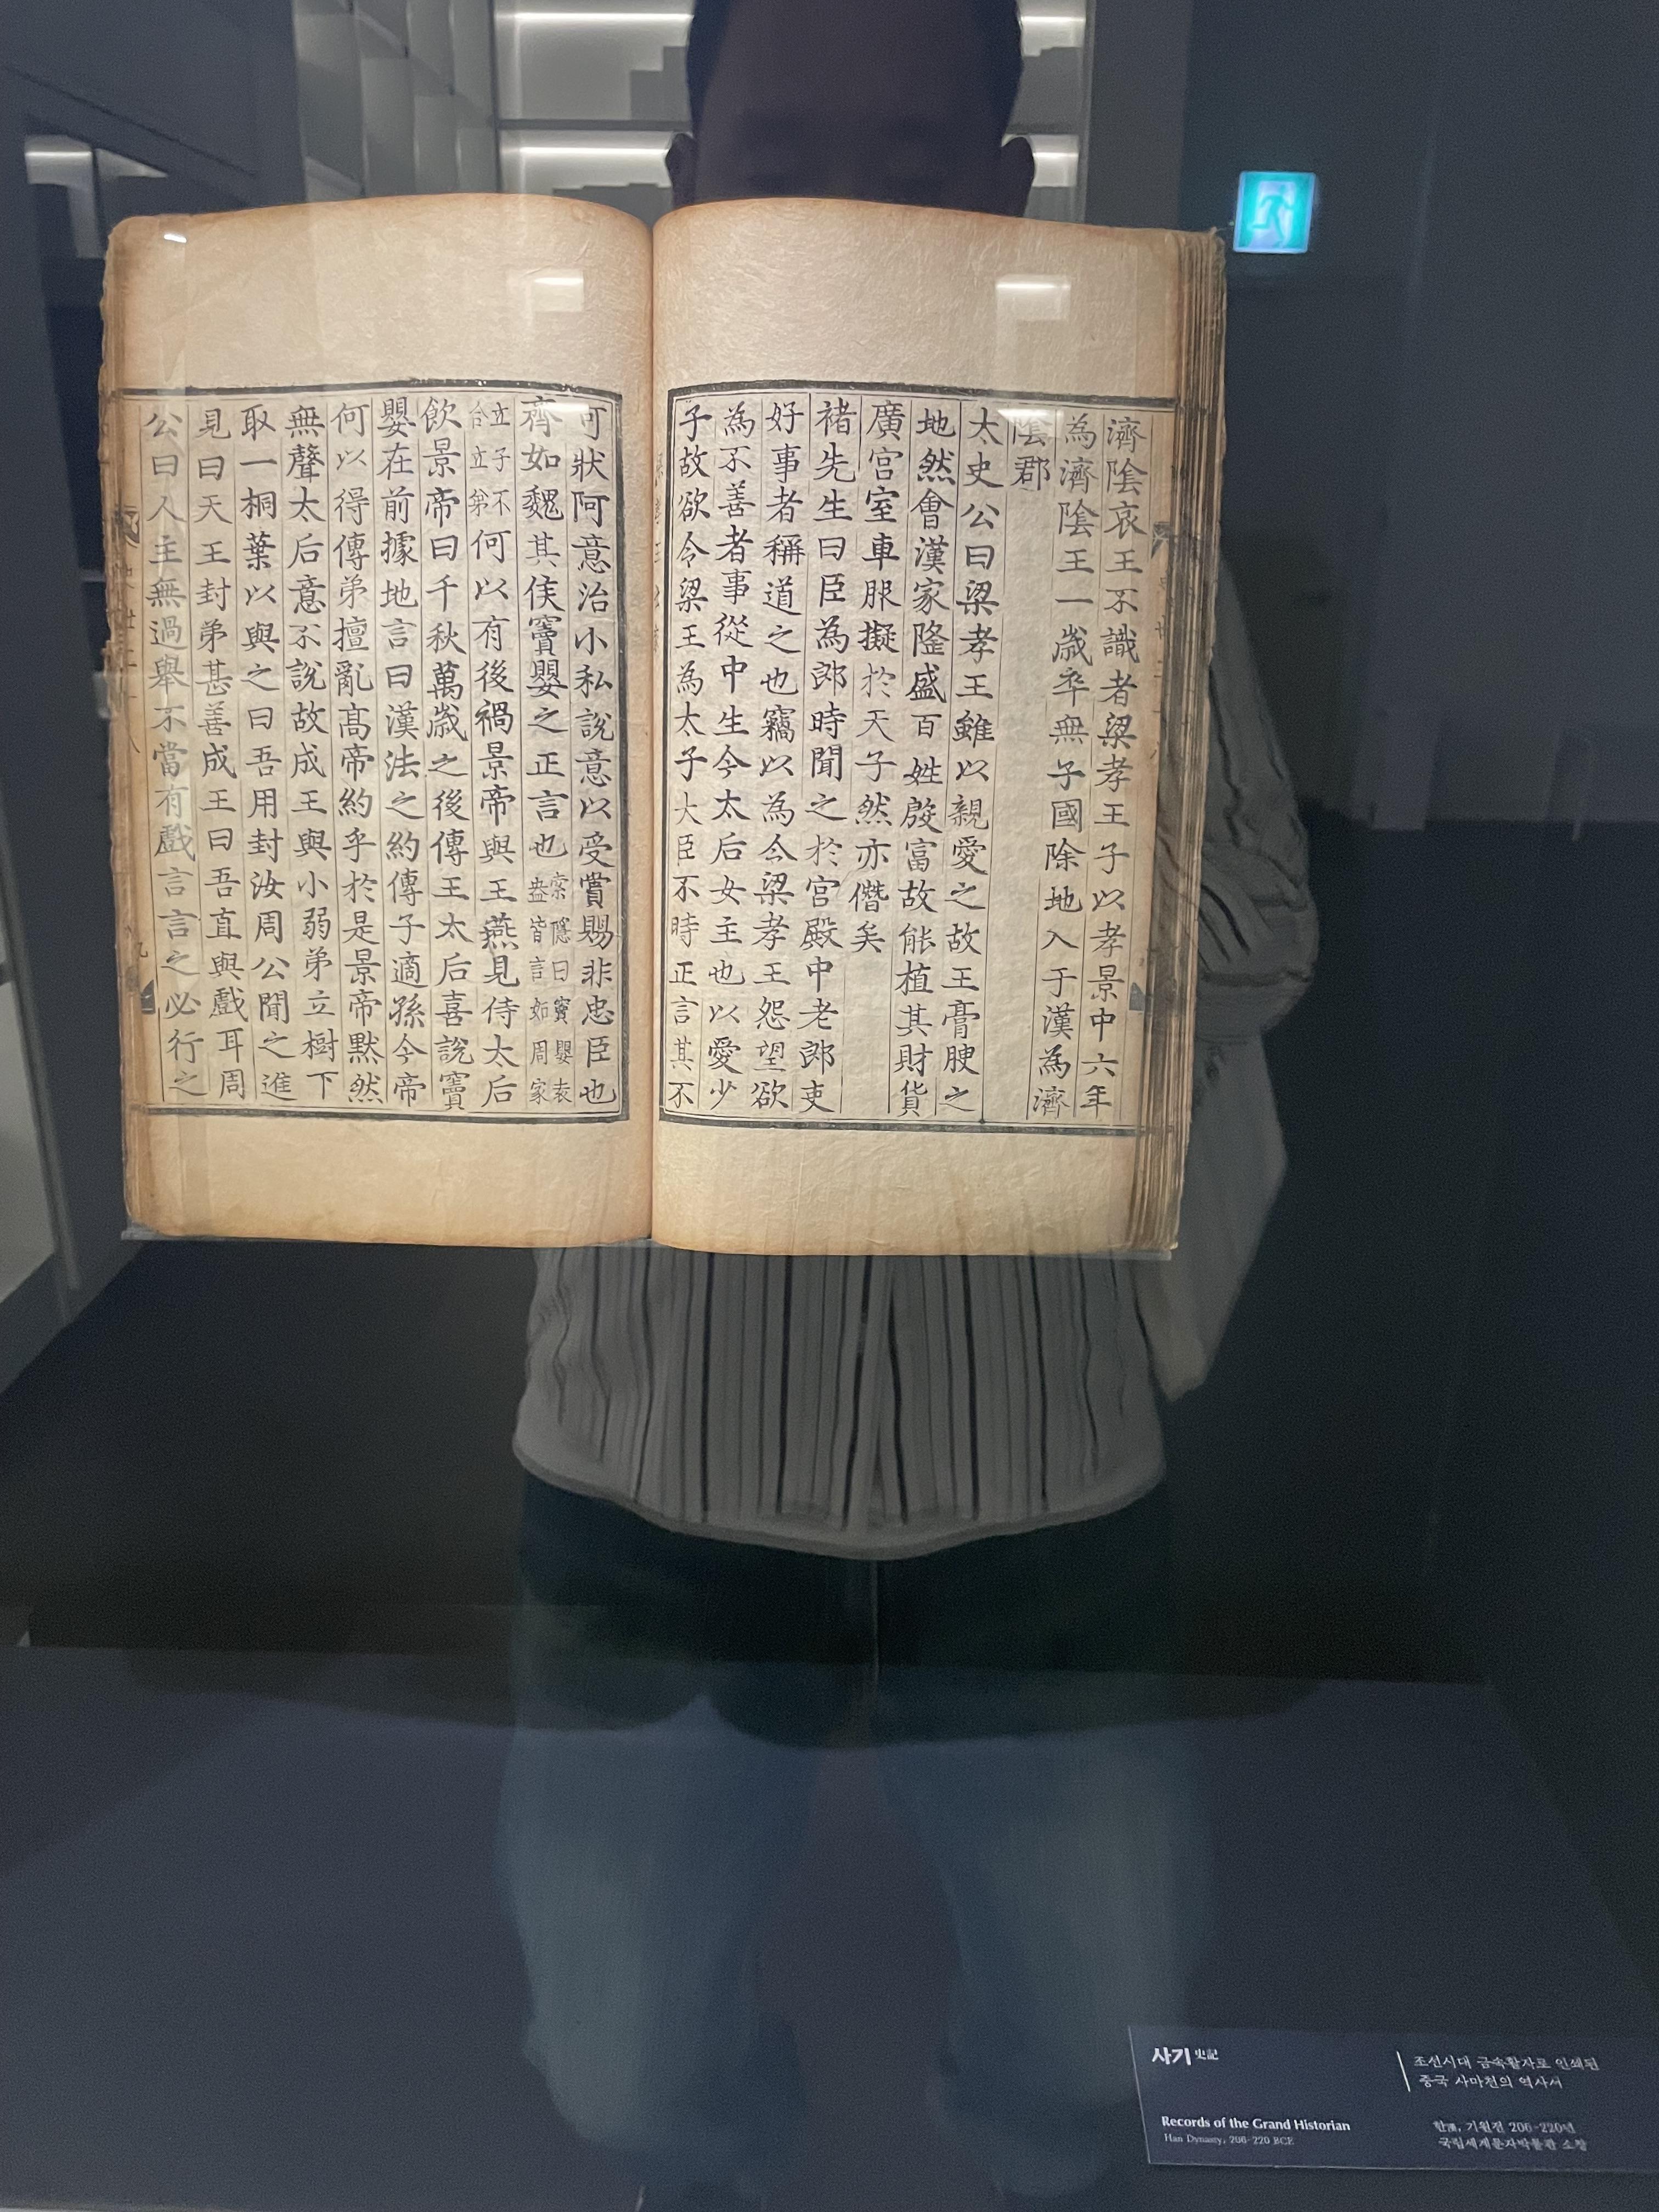 濟陰哀王不識者梁孝王子以孝景中六年
為濟陰王一歲卒無子國除地入于漢為濟
陰郡
太史公曰梁孝王雖以親愛之故王膏腴之
地然會漢家隆盛百姓殷富故能植其財貨
廣宫室車服擬於天子然亦僭矣
褚先生曰臣為郎時聞之於宮殿中老郎吏
好事者稱道之也竊以為令梁孝王怨望欲
為不善者事從中生今太后女主也以愛少
子故欲令梁王為太子大臣不時正言其不
可狀阿意治小私說意以受賞賜非忠臣也
齊如魏其侯竇嬰之正言也索隱曰竇嬰袁
盎皆言如周家
立子不
合立弟何以有後禍景帝與王燕見侍太后
飲景帝曰千秋萬歲之後傳王太后喜說竇
嬰在前據地言曰漢法之約傳子適孫今帝
何以得傳弟擅亂高帝約乎於是景帝默然
無聲太后意不說故成王與小弱弟立樹下
取一桐葉以與之曰吾用封汝周公聞之進
見曰天王封弟甚善成王曰吾直與戲耳周
公曰人主無過舉不當有戲言言之必行之
사기 史記
조선시대 금속활자로 인쇄된
중국 사마천의 역사서
Records of the Grand Historian
Han Dynasty, 206-220 BCE
한漢, 기원전 206-220년
국립세계문자박물관 소장